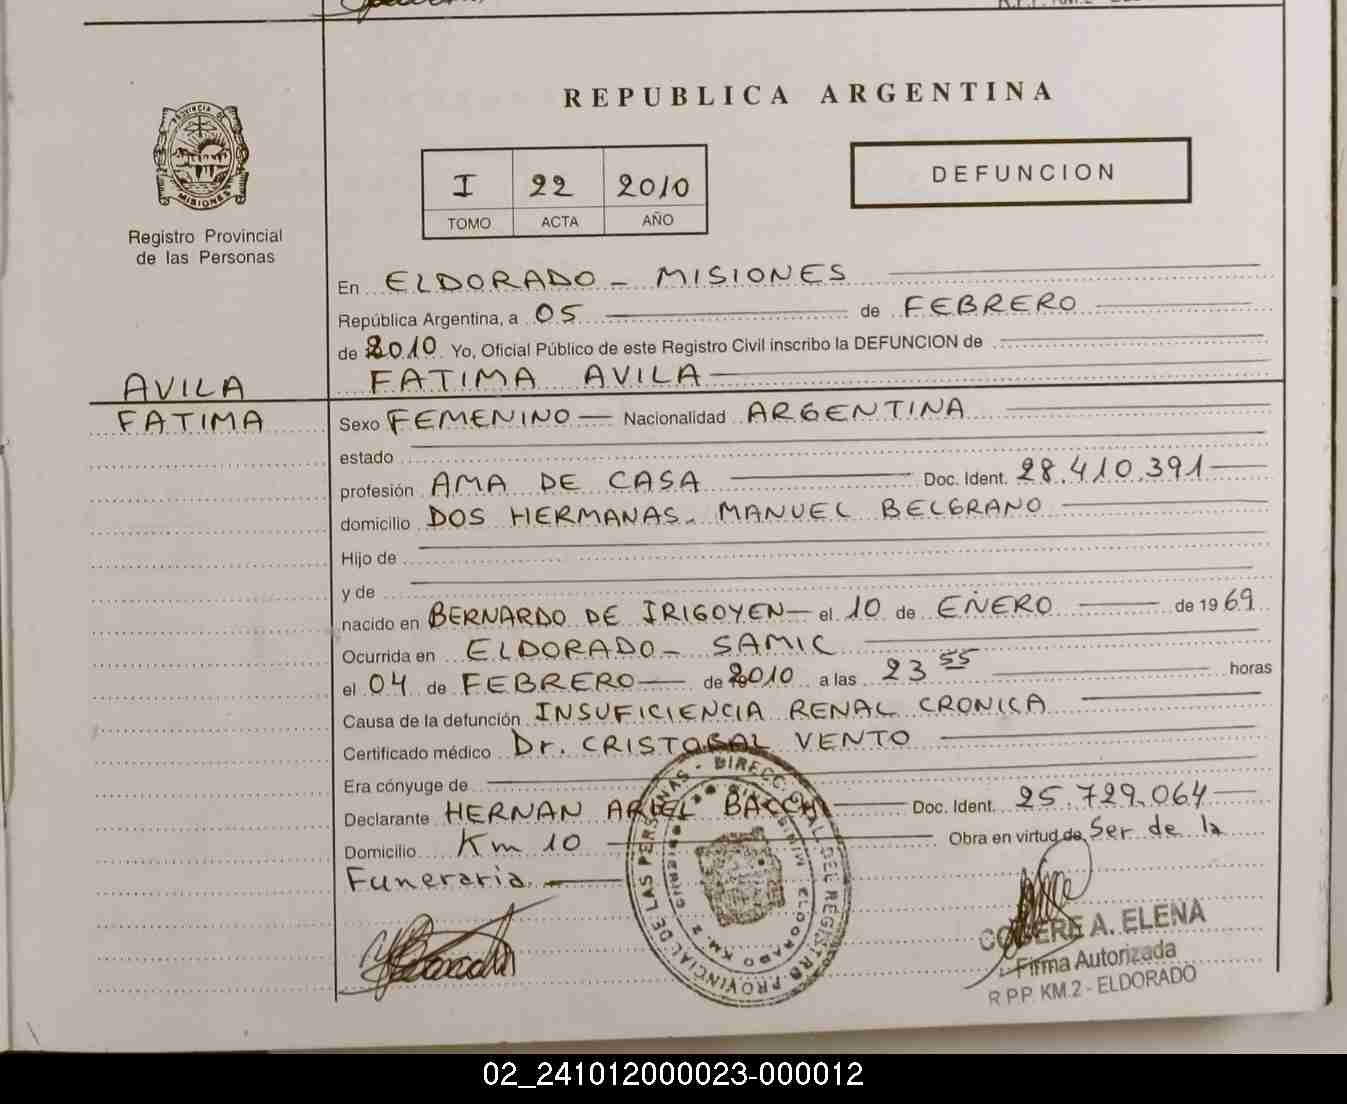 REPUBLICA ARGENTINA
PROVINCIA DE MISIONES
Registro Provincial
de las Personas
I 22 2010
TOMO ACTA AÑO
DEFUNCION
En ELDORADO - MISIONES
República Argentina, a 05 de FEBRERO
de 2010 Yo, Oficial Público de este Registro Civil inscribo la DEFUNCION de
AVILA FATIMA AVILA
FATIMA Sexo FEMENINO Nacionalidad ARGENTINA
estado
profesión AMA DE CASA Doc. Ident. 28.410.391
domicilio DOS HERMANAS. MANUEL BELGRANO
Hijo de
y de
nacido en BERNARDO DE IRIGOYEN el 10 de ENERO de 1969
Ocurrida en ELDORADO - SAMIC
el 04 de FEBRERO de 2010 a las 23 55 horas
Causa de la defunción INSUFICIENCIA RENAL CRONICA
Certificado médico Dr. CRISTOBAL VENTO
Era cónyuge de
Declarante HERNAN ARIEL Doc. Ident. 25.729.064
Domicilio Km 10 Obra en virtud de Ser de la
Funeraria
DIRECC. GRAL. DEL REGISTRO PROVINCIAL DE LAS PERSONAS
ELDORADO KM. 2
A. ELENA
Firma Autorizada
R.P.P. KM.2 - ELDORADO
02_241012000023-000012